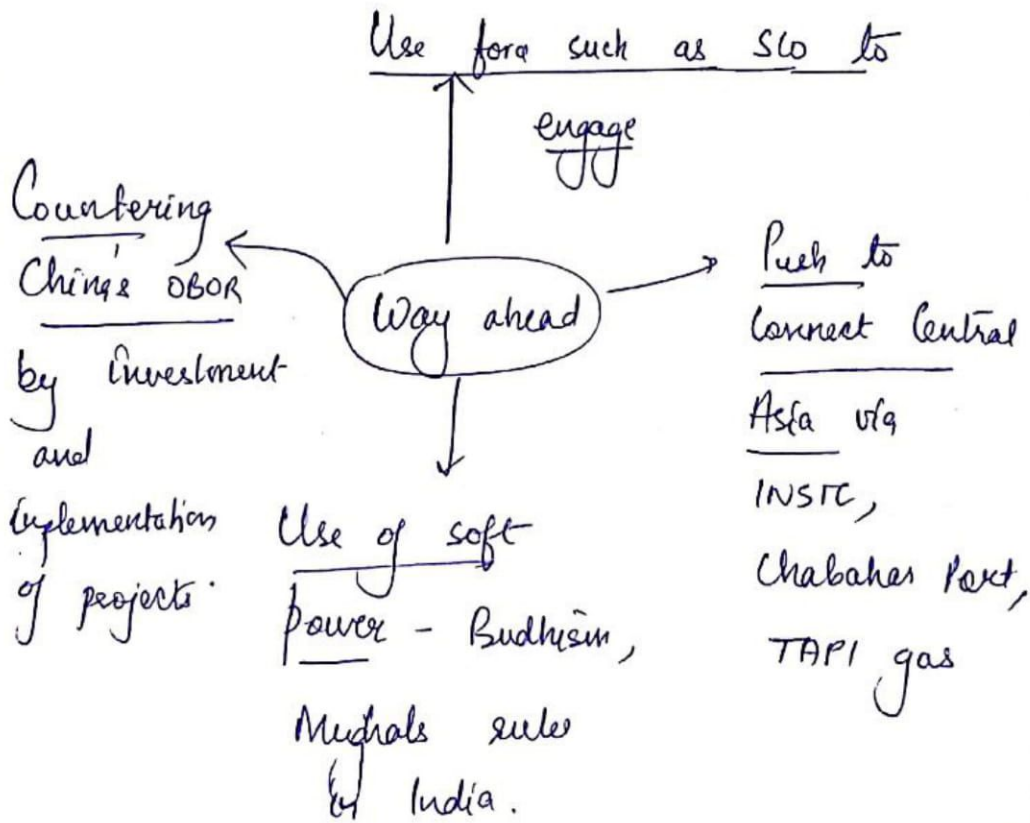 Use fora such as SCO to
engage
Countering
China's OBOR
by investment
and
implementation
of projects.
Way ahead
Push to
Connect Central
Asia via
INSTC,
Chabahar Port,
TAPI gas
Use of soft
power - Budhism,
Mughals rule
in India.